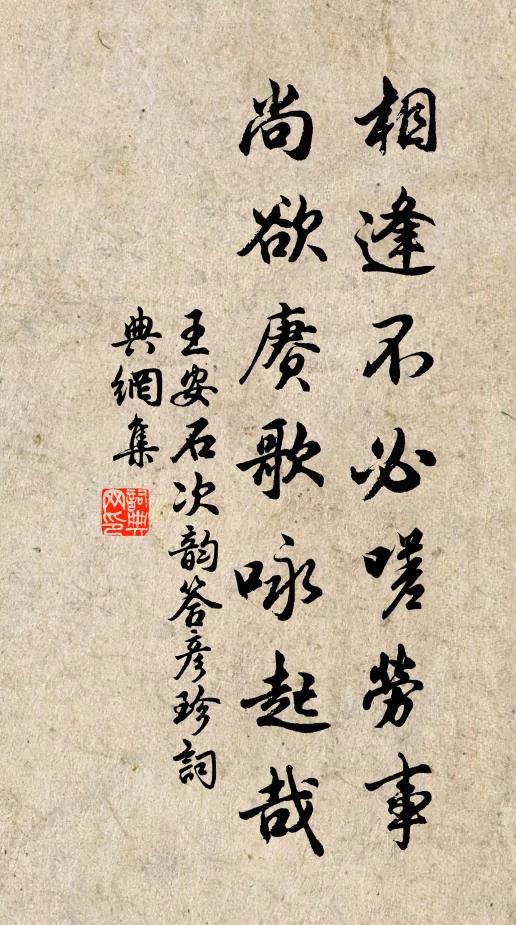 相逢不必嗟勞事
尚欲賡歌咏起哉
王安石次韵答彦珍詞
典網集
詞典网印